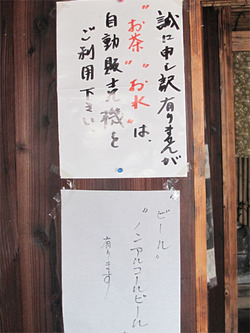 誠に申し訳有りませんが
"お茶" "お水" は、
自動販売機を
ご利用下さい
ビール"
"ノンアルコールビール
有ります